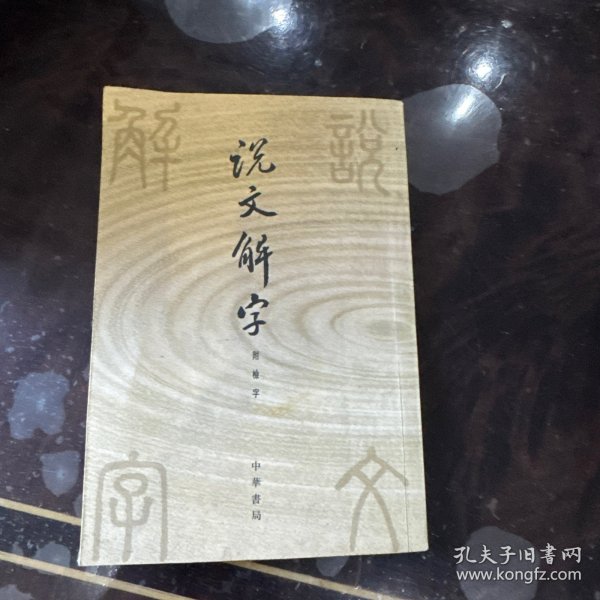 说文解字
附检字
中華書局
說
文
解
字
孔夫子旧書网
www.kongfz.com